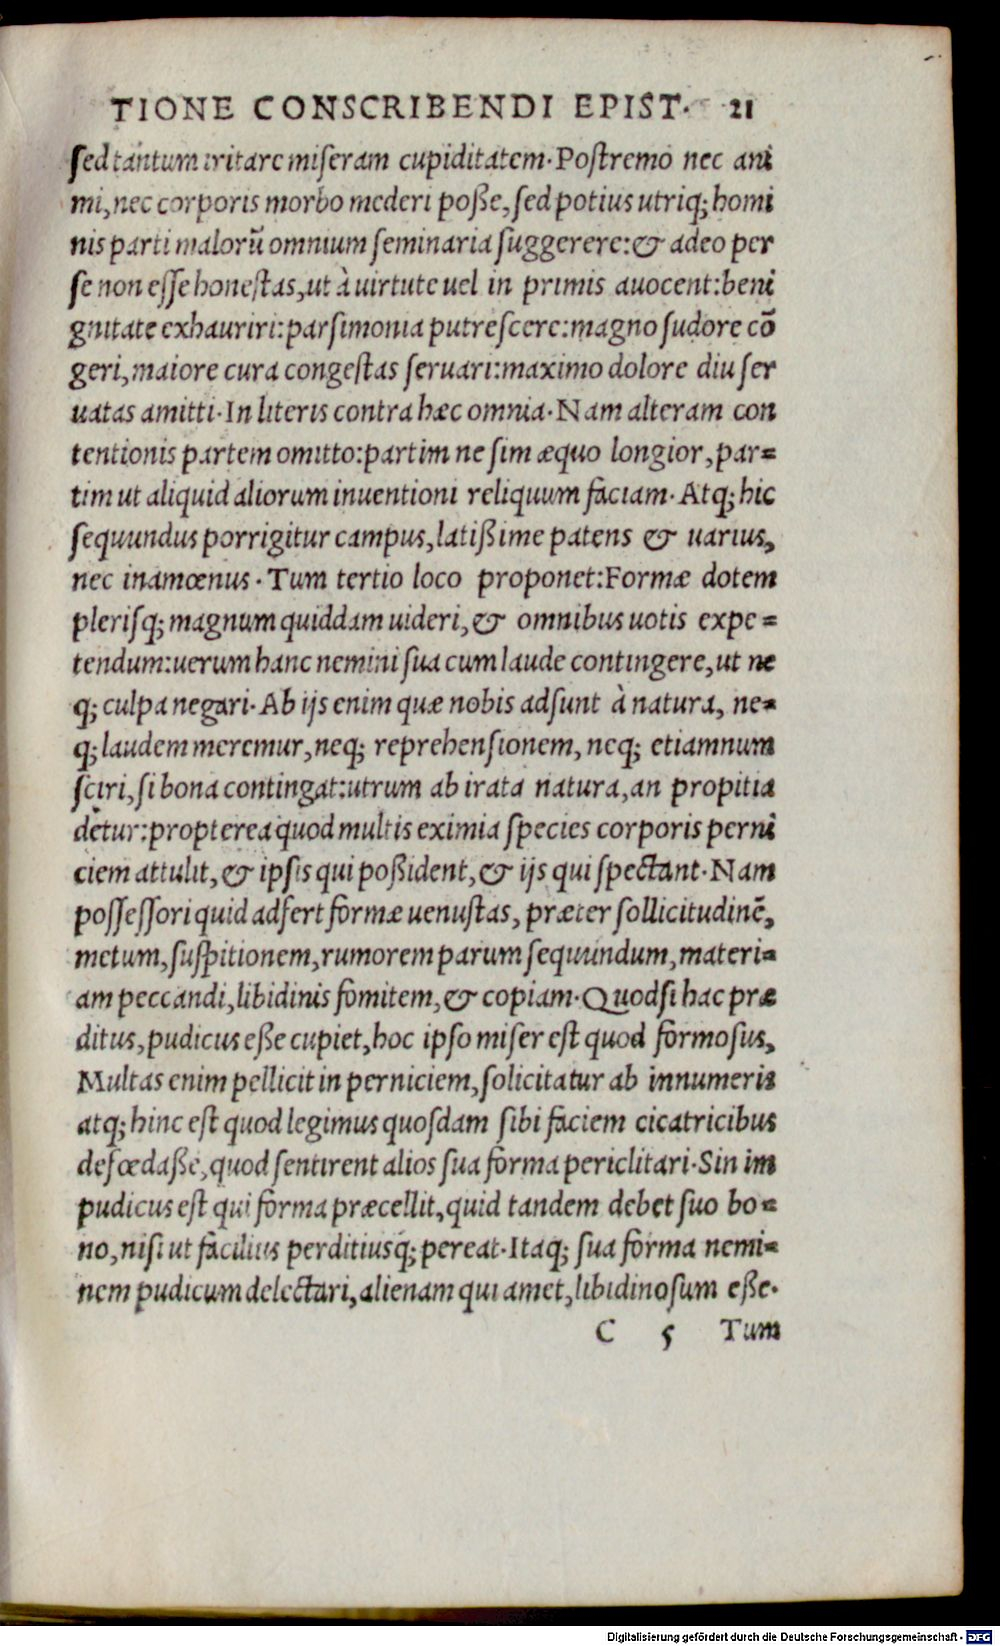 TIONE CONSCRIBENDI EPIST. 21
sed tantum irritare miseram cupiditatem. Postremo nec ani
mi, nec corporis morbo mederi poße, sed potius utriq; homi
nis parti malorũ omnium seminaria suggerere: & adeo per
se non esse honestas, ut à uirtute uel in primis auocent: beni
gnitate exhauriri: parsimonia putrescere: magno sudore cō
geri, maiore cura congestas seruari: maximo dolore diu ser
uatas amitti. In literis contra hæc omnia. Nam alteram con
tentionis partem omitto: partim ne sim æquo longior, par=
tim ut aliquid aliorum inuentioni reliquum faciam. Atq; hic
sequundus porrigitur campus, latißime patens & uarius,
nec inamœnus. Tum tertio loco proponet: Formæ dotem
plerisq; magnum quiddam uideri, & omnibus uotis expe=
tendum: uerum hanc nemini sua cum laude contingere, ut ne
q; culpa negari. Ab ijs enim quæ nobis adsunt à natura, ne=
q; laudem meremur, neq; reprehensionem, neq; etiamnum
sciri, si bona contingat: utrum ab irata natura, an propitia
detur: propterea quod multis eximia species corporis perni
ciem attulit, & ipsis qui poßident, & ijs qui spectant. Nam
possessori quid adfert formæ uenustas, præter sollicitudinē,
metum, suspitionem, rumorem parum sequundum, materi=
am peccandi, libidinis fomitem, & copiam. Quod si hac præ
ditus, pudicus eße cupiet, hoc ipso miser est quod formosus,
Multas enim pellicit in perniciem, solicitatur ab innumeris
atq; hinc est quod legimus quosdam sibi faciem cicatricibus
defœdaße, quod sentirent alios sua forma periclitari. Sin im
pudicus est qui forma præcellit, quid tandem debet suo bo=
no, nisi ut facilius perditiusq́; pereat. Itaq; sua forma nemi=
nem pudicum delectari, alienam qui amet, libidinosum eße.
C 5 Tum
Digitalisierung gefördert durch die Deutsche Forschungsgemeinschaft - DFG